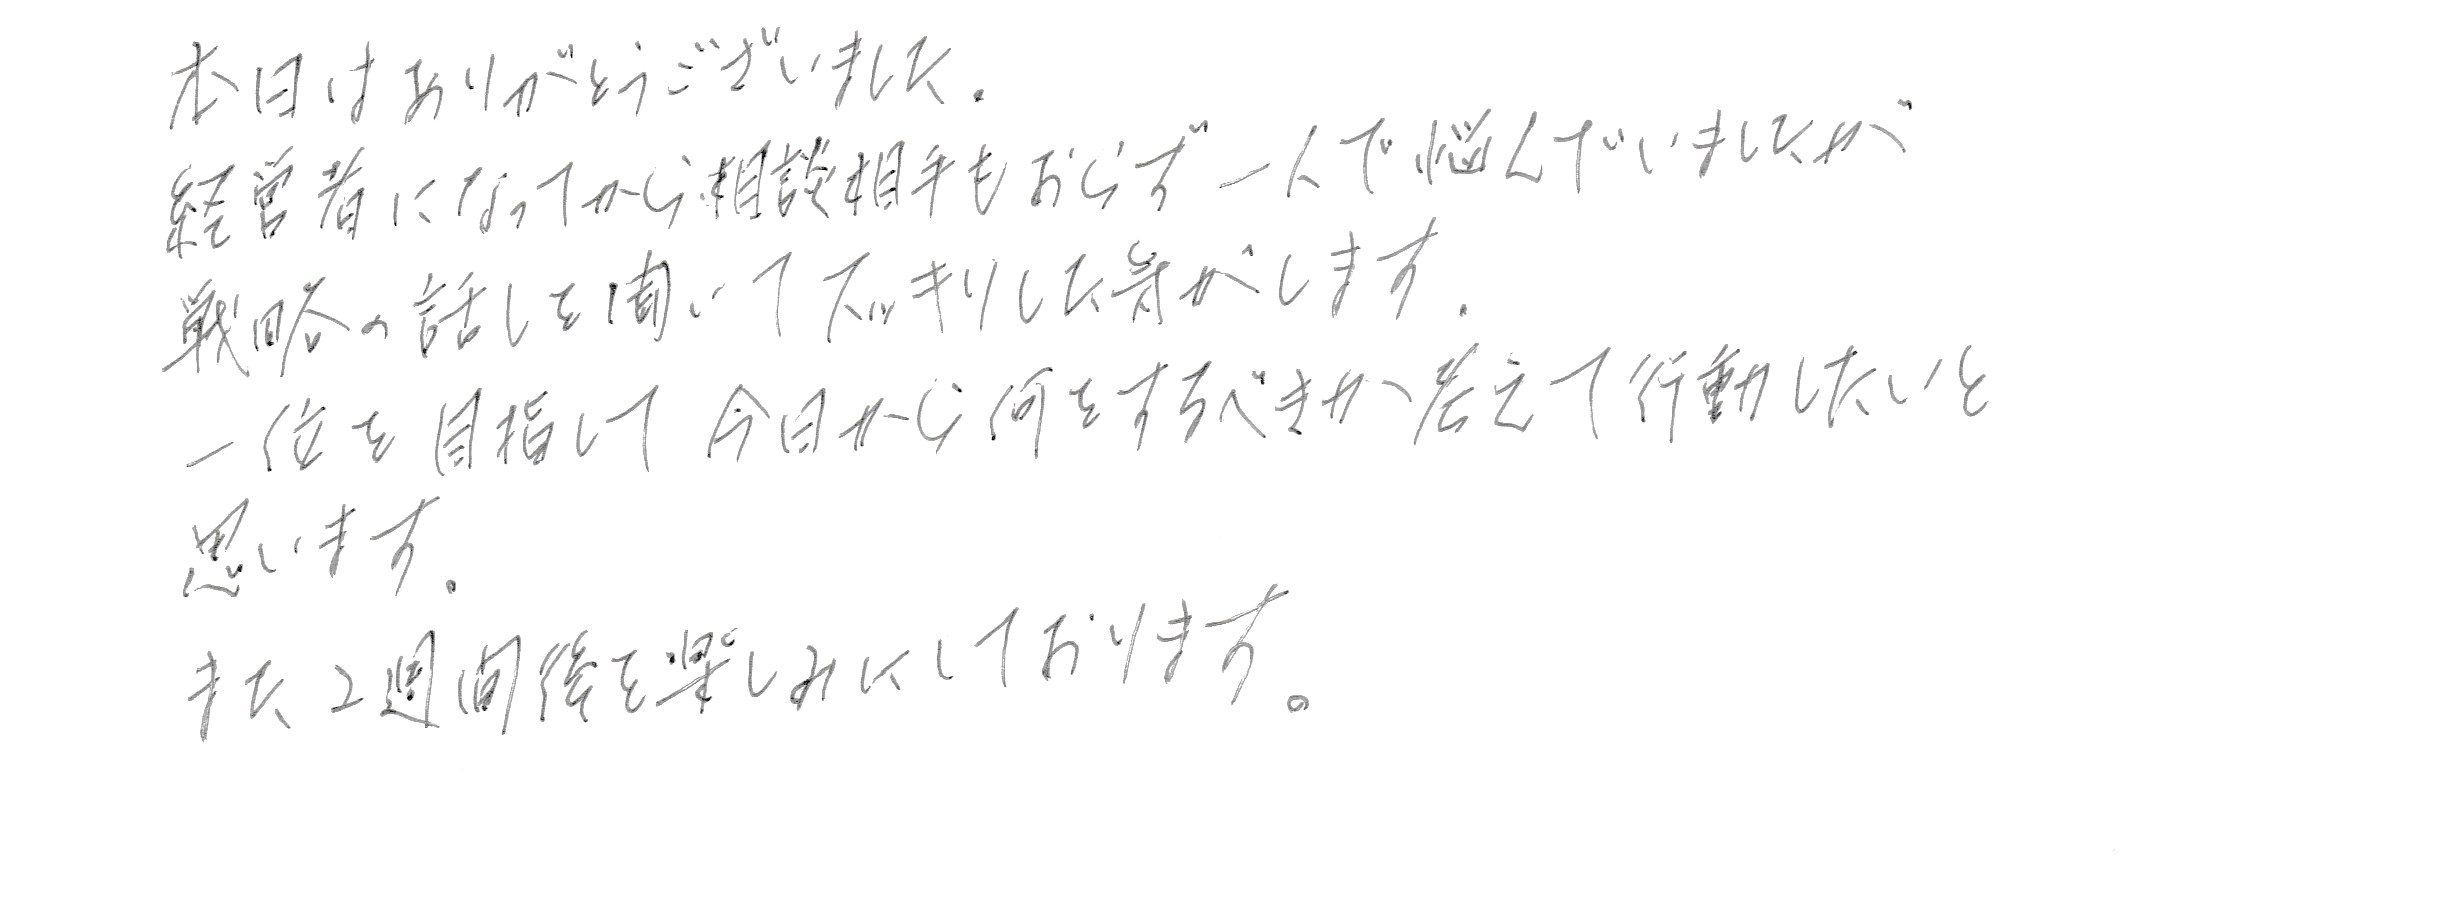 本日はありがとうございました.
経営者になってから相談相手もおらず一人で悩んでいましたが
戦略の話しを聞いてスッキリした気がします.
一位を目指して今日から何をするべきか考えて行動したいと
思います。
また2週間後を楽しみにしております。